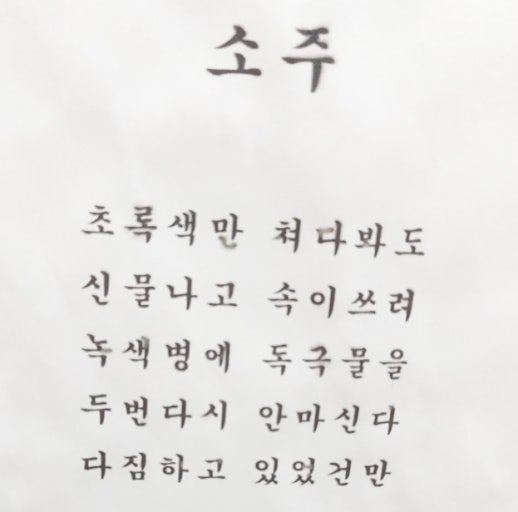 소주
초록색만 쳐다봐도
신물나고 속이쓰려
녹색병에 독극물을
두번다시 안마신다
다짐하고 있었건만